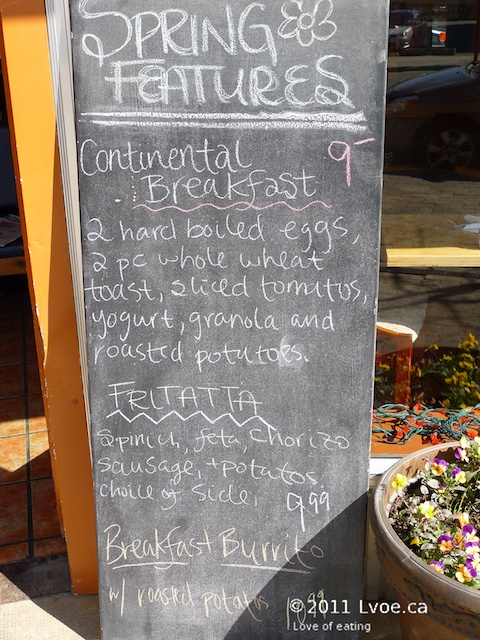 SPRING
FEATURES
Continental 9-
Breakfast
2 hard boiled eggs,
2 pc whole wheat
toast, sliced tomatos,
yogurt, granola and
roasted potatoes.
FRITATTA
Spinich, feta, chorizo
sausage, + potatos.
choice of side. 9.99
Breakfast Burrito
w/ roasted potatos
© 2011 Lvoe.ca
Love of eating